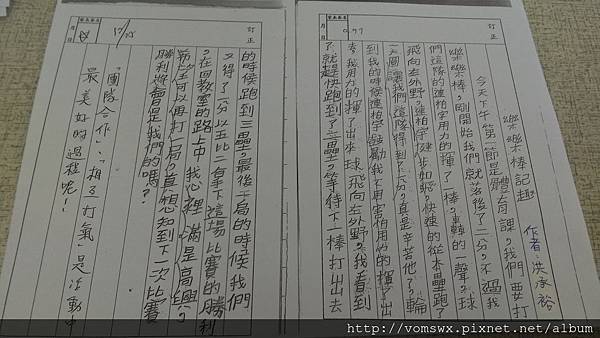 訂正
樂樂棒記趣
作者：洪承裕
今天下午第一節是體育課，我們要打
樂樂棒，剛開始我們就落後了二分，不過我
們這隊的連柏宇用力的揮了一棒，轟的一聲，球
飛向左外野，連柏宇健步如飛，快速的從本壘跑了
一圈讓我們這隊得到了一分，真是辛苦他了，輪
到我的時候連柏宇鼓勵我不用害怕用力的揮了出
去，我用力的揮了出來球飛向左外野，我看到
了就趕快跑到了一壘，等待下一棒打出去
訂正
的時候跑到三壘，最後一局的時候我們
又得了一分以五比二拿下這場比賽的勝利
，在回教室的路上中我心裡滿是高興，
希望可以再打一局，真想知到下一次比賽
勝利將會是我們的嗎？
「團隊合作」、「相互打氣」是活動中
最美好的過程呢！
http://vomswx.pixnet.net/album